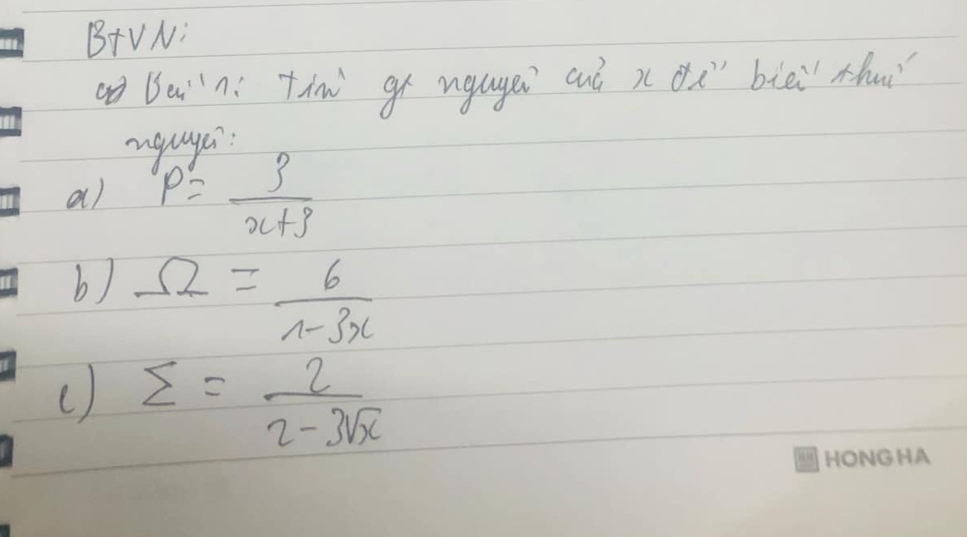 BTVN:
Bài 1: Tìm gt nguyên của x để biểu thức
nguyên:
a) P = 3/(x+3)
b) Ω = 6/(1-3x)
c) Σ = 2/(2-3√x)
HONG HA